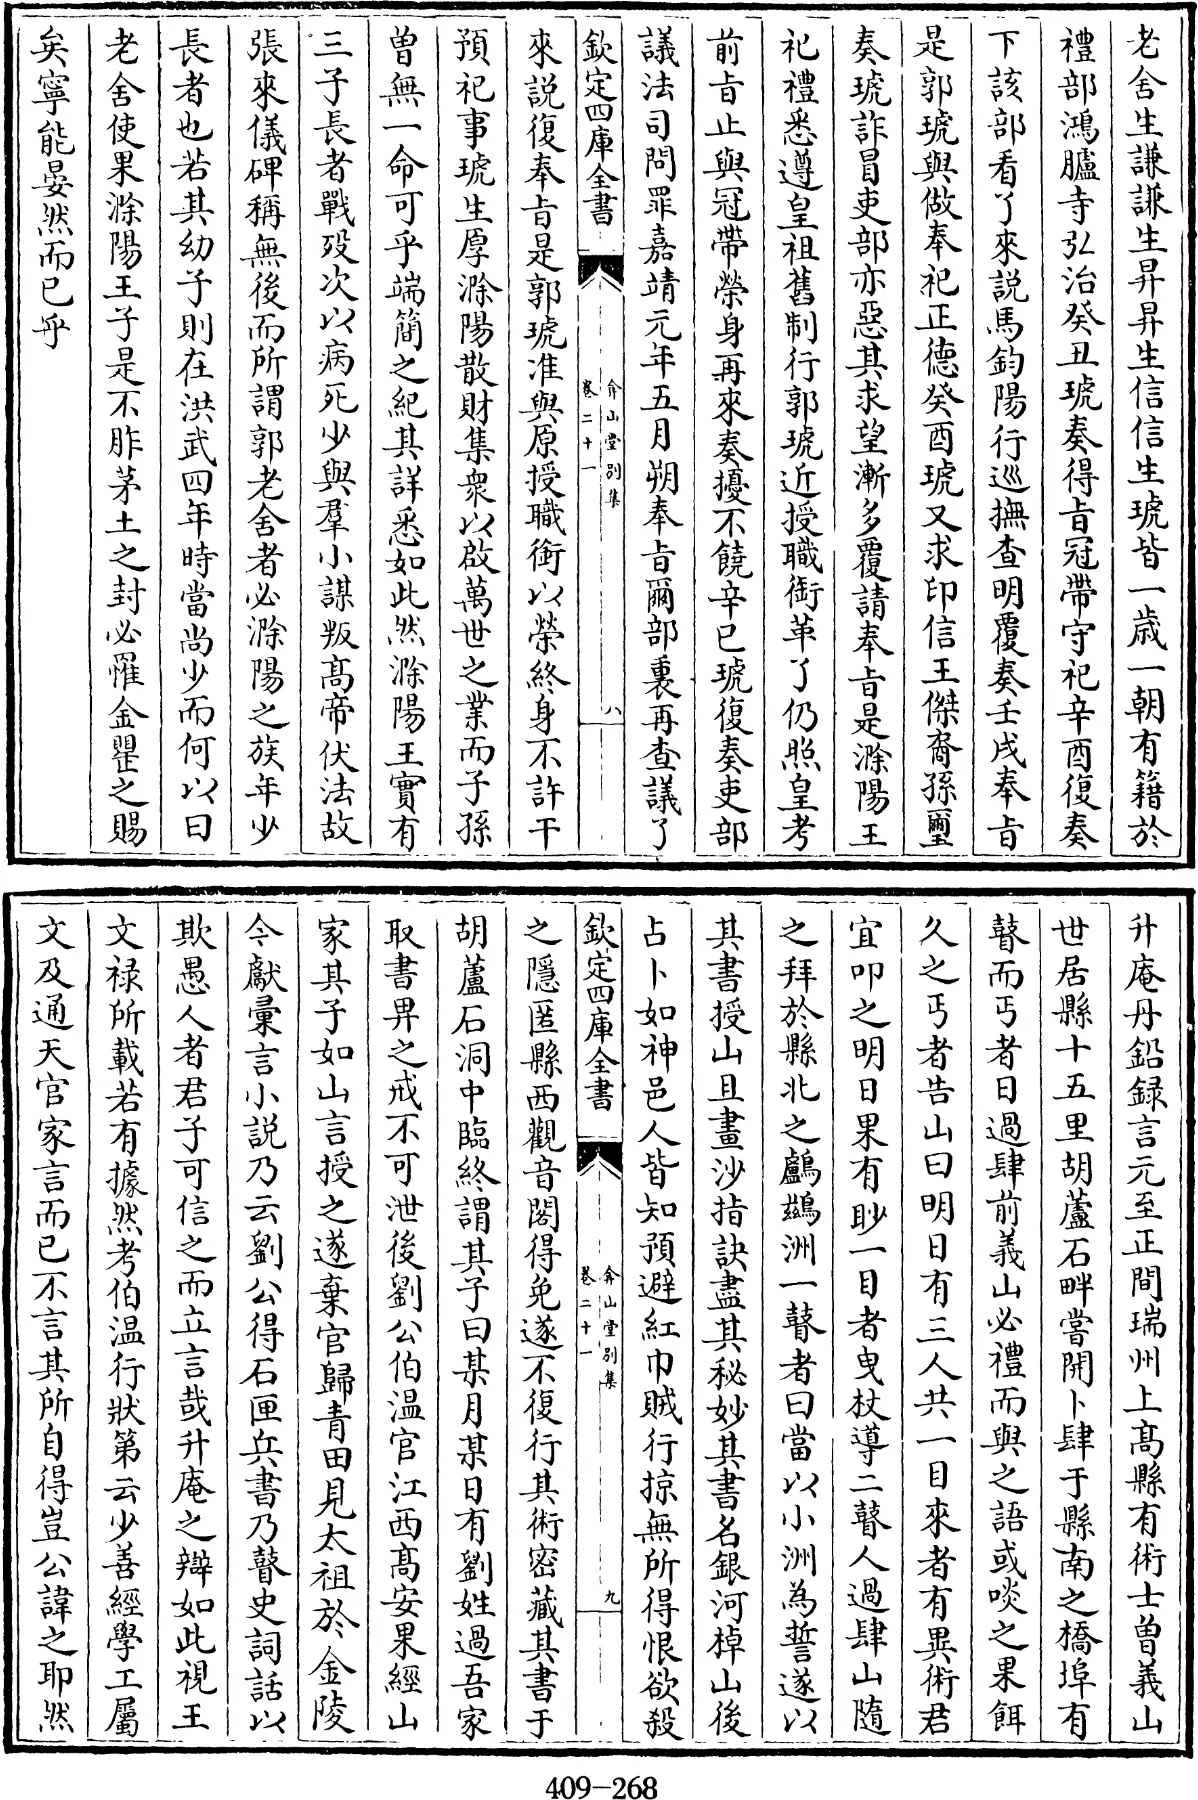 老舍生謙謙生昇昇生信信生琥皆一歳一朝有籍於
禮部鴻臚寺弘治癸丑琥奏得㫖冠帶守祀辛酉復奏
下該部看了來説馬鈞陽行巡撫查明覆奏壬戌奉㫖
是郭琥與做奉祀正德癸酉琥又求印信王傑裔孫璽
奏琥詐冒吏部亦惡其求望漸多覆請奉㫖是滁陽王
祀禮悉遵皇祖舊制行郭琥近授職銜革了仍照皇考
前㫖止與冠帶榮身再來奏擾不饒辛巳琥復奏吏部
議法司問罪嘉靖元年五月朔奉㫖爾部裏再查議了
欽定四庫全書
弇山堂别集
卷二十一
八
來説復奉㫖是郭琥准與原授職銜以榮終身不許干
預祀事琥生厚滁陽散財集衆以啟萬世之業而子孫
曽無一命可乎端簡之紀其詳悉如此然滁陽王實有
三子長者戰殁次以病死少與羣小謀叛髙帝伏法故
張來儀碑稱無後而所謂郭老舍者必滁陽之族年少
長者也若其幼子則在洪武四年時當尚少而何以曰
老舍使果滁陽王子是不胙茅土之封必罹金罌之賜
矣寧能晏然而已乎
升庵丹鉛録言元至正間瑞州上髙縣有術士曽義山
世居縣十五里胡蘆石畔嘗開卜肆于縣南之橋埠有
瞽而丐者日過肆前義山必禮而與之語或啖之果餌
久之丐者告山曰明日有三人共一目來者有異術君
宜叩之明日果有眇一目者曳杖導二瞽人過肆山隨
之拜於縣北之鸕鷀洲一瞽者曰當以小洲為誓遂以
其書授山且畫沙指訣盡其秘妙其書名銀河棹山後
占卜如神邑人皆知預避紅巾賊行掠無所得恨欲殺
欽定四庫全書
弇山堂别集
卷二十一
九
之隱匿縣西觀音閣得免遂不復行其術密藏其書于
胡蘆石洞中臨終謂其子曰某月某日有劉姓過吾家
取書畀之戒不可泄後劉公伯温官江西髙安果經山
家其子如山言授之遂棄官歸青田見太祖於金陵
今獻彙言小説乃云劉公得石匣兵書乃瞽史詞話以
欺愚人者君子可信之而立言哉升庵之辯如此視王
文禄所載若有據然考伯温行狀第云少善經學工屬
文及通天官家言而已不言其所自得豈公諱之耶然
409-268